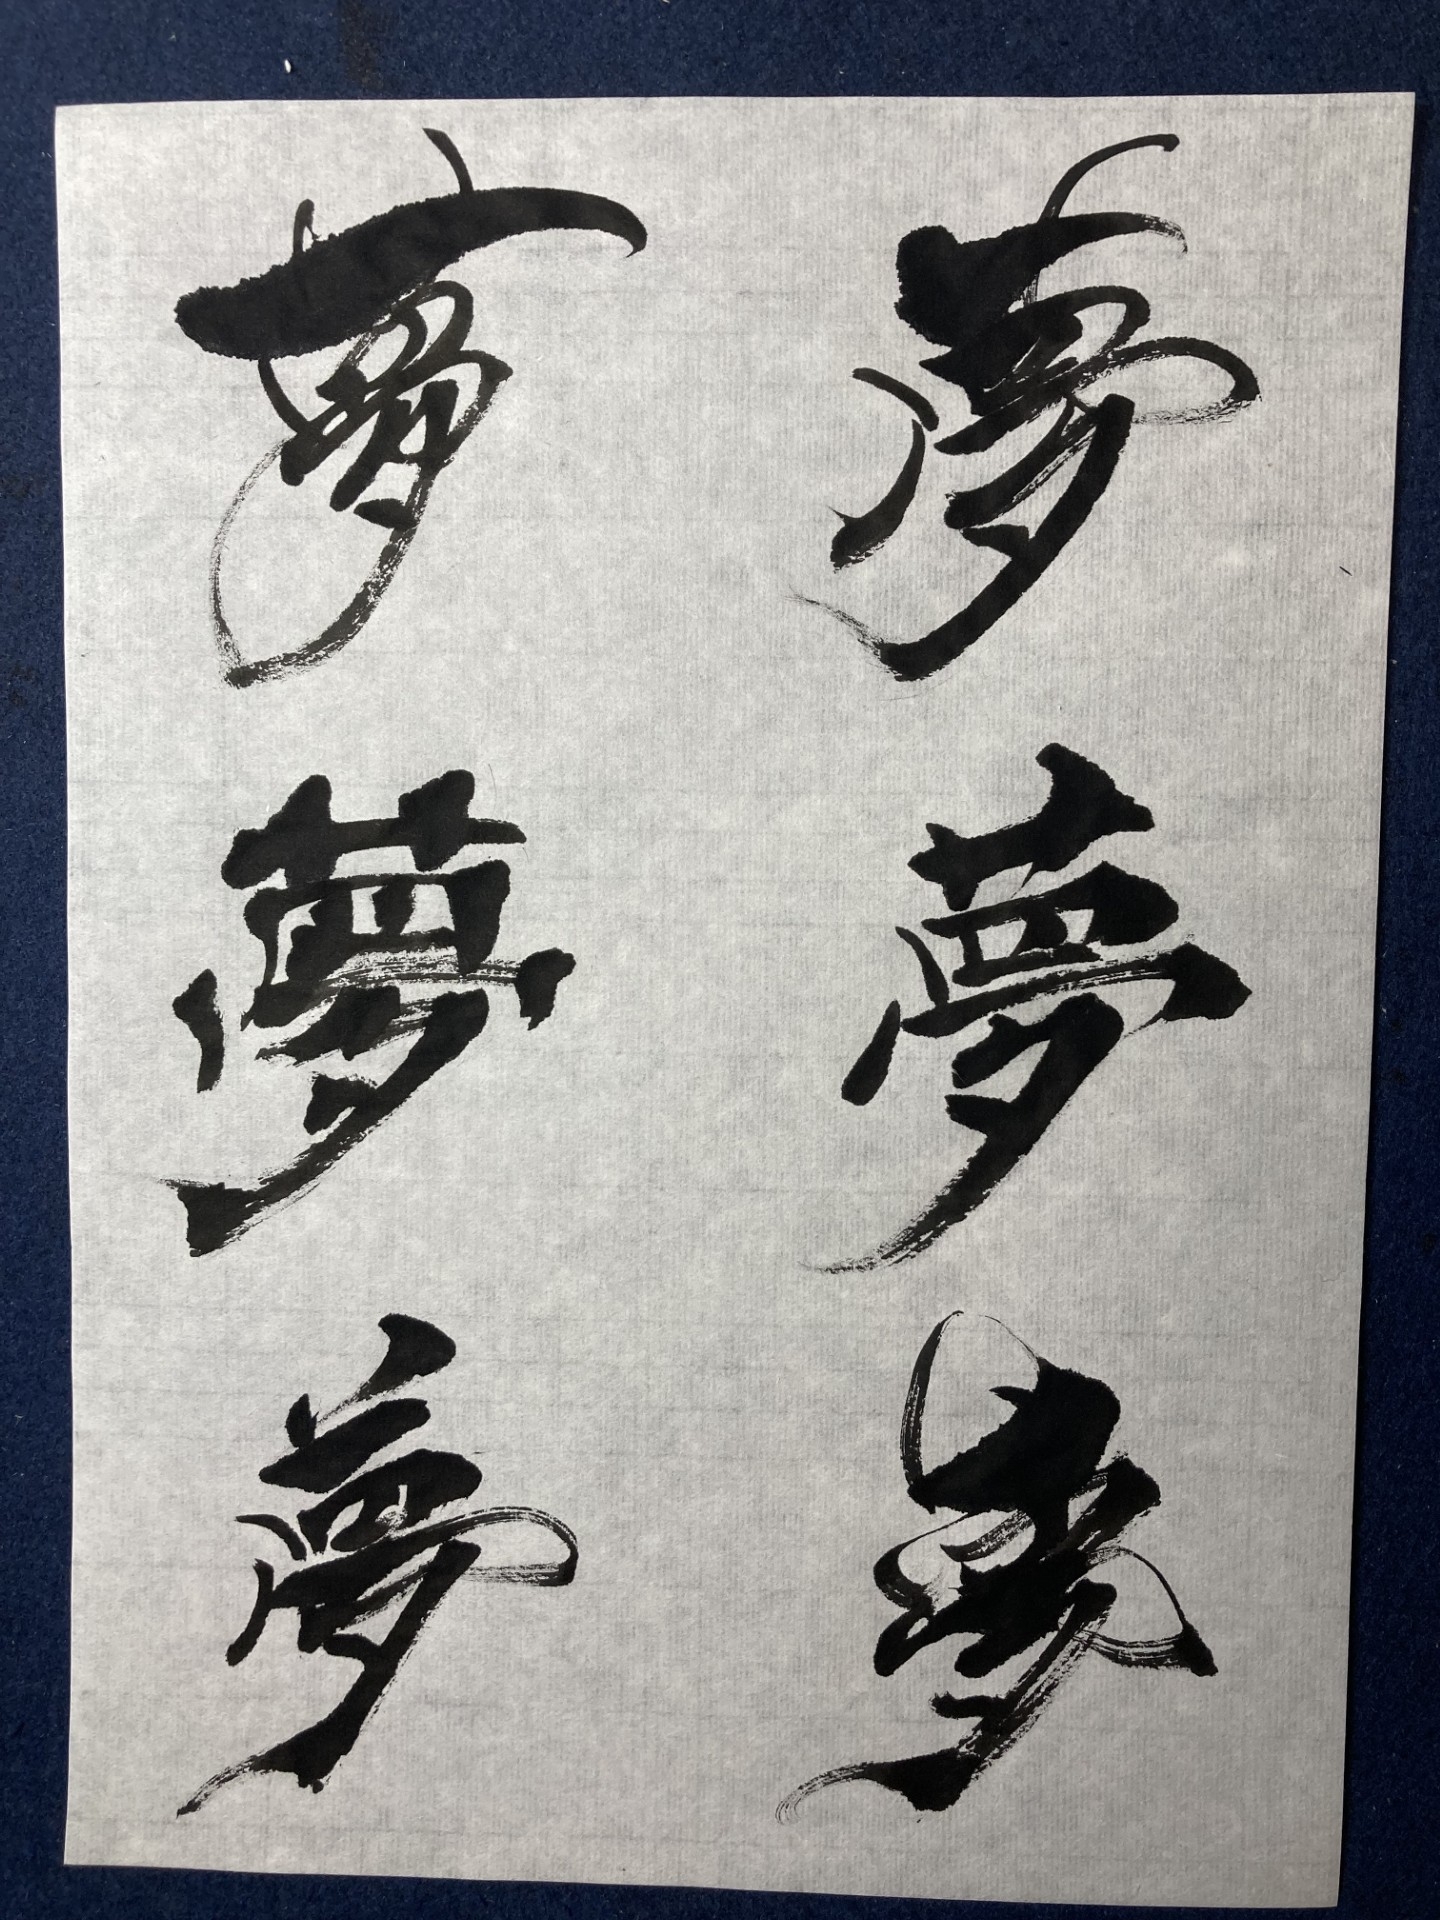 夢
夢
夢
夢
夢
夢